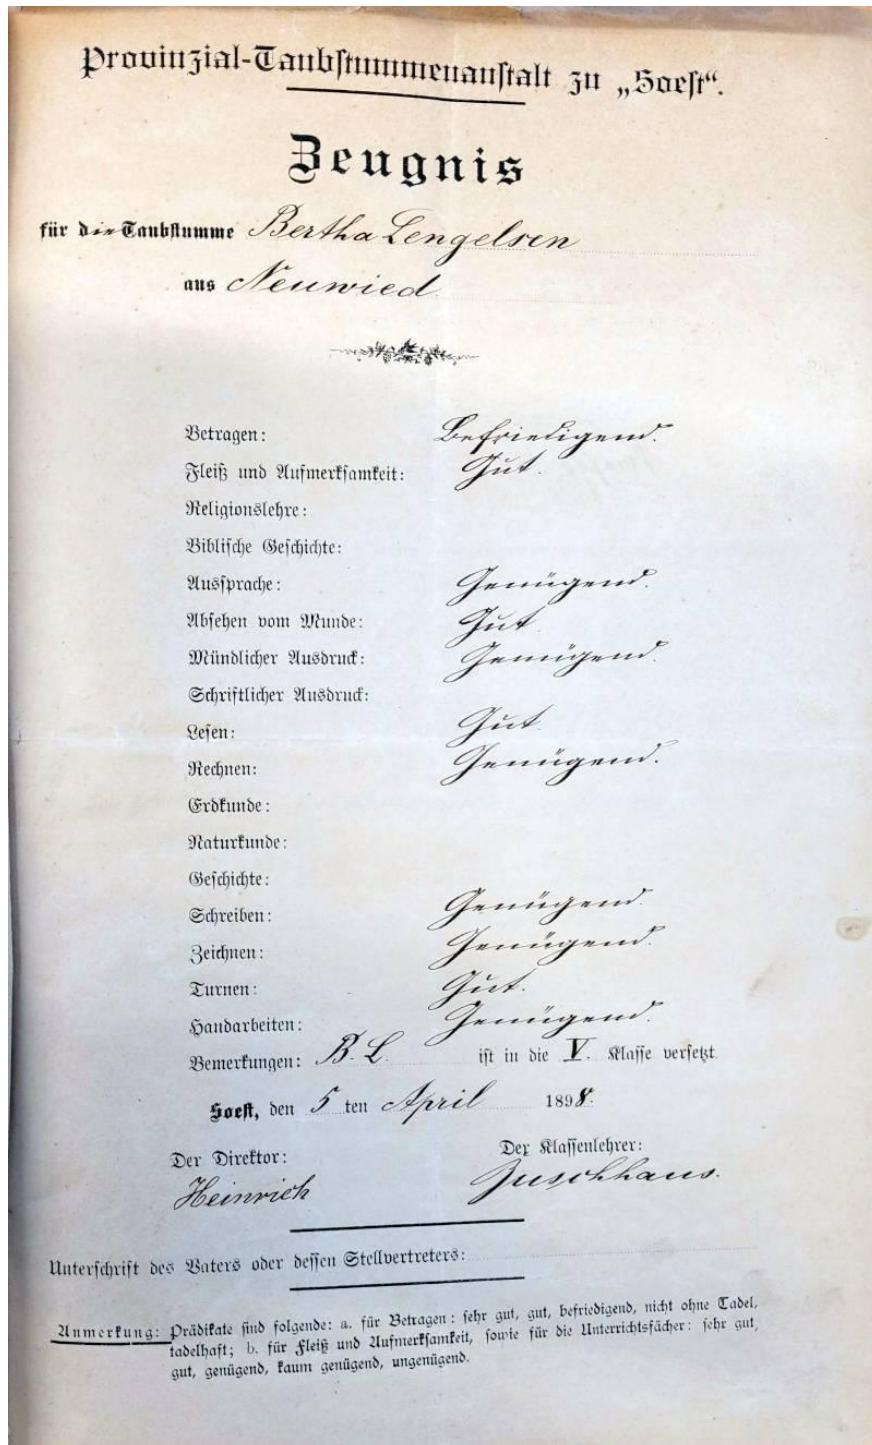 Provinzial-Taubstummenanstalt zu „Soest“.
Zeugnis
für die Taubstumme Bertha Lengelsen
aus Neuwied.
Betragen: Befriedigend.
Fleiß und Aufmerksamkeit: Gut.
Religionslehre:
Biblische Geschichte:
Aussprache: Genügend.
Absehen vom Munde: Gut.
Mündlicher Ausdruck: Genügend.
Schriftlicher Ausdruck:
Lesen: Gut.
Rechnen: Genügend.
Erdkunde:
Naturkunde:
Geschichte:
Schreiben: Genügend.
Zeichnen: Genügend.
Turnen: Gut.
Handarbeiten: Genügend.
Bemerkungen: B. L. ist in die V. Klasse versetzt.
Soest, den 5 ten April 1898.
Der Direktor: Der Klassenlehrer:
Heinrich Zuschhaus.
Unterschrift des Vaters oder dessen Stellvertreters:
Anmerkung: Prädikate sind folgende: a. für Betragen: sehr gut, gut, befriedigend, nicht ohne Tadel,
tadelhaft; b. für Fleiß und Aufmerksamkeit, sowie für die Unterrichtsfächer: sehr gut,
gut, genügend, kaum genügend, ungenügend.